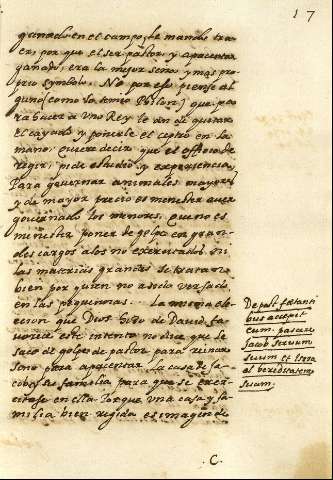 17
ganado en el campo, le mando tra
er, por que el ser pastor, y apacentar
ganado, era la mejor señal, y mas pro
prio symbolo. No por esso piense al
guno (como lo sintio Philon) que pa
ra hacer a uno Rey le an de quitar
el cayado, y ponerle el ceptro en la
mano, quiere decir que el officio de
regir, pide estudio y experiencia,
Para governar animales mayores
y de mayor precio es menester aver
governado los menores, Que no es
menester poner de golpe en gran
des cargos a los no exercitados. ni
las materias grandes se trataran
bien por quien no a sido versado
en las pequeñas. La misma ele
ccion que Dios hizo de David fa
vorece este intento no dice que le
saco de golpe de pastor para reinar
sino para apacentar la casa de Ja
cob su familia para que se exer
citase en esta Porque una casa y fa
milia bien regida es imagen de
De post fœtanti
bus accepit
eum. pascere
Jacob servum
suum et Isra
el hereditatem
suam.
.C.